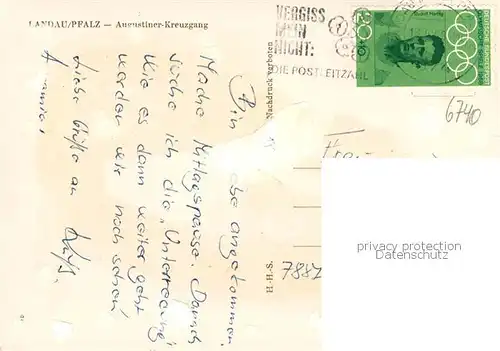 LANDAU/PFALZ — Augustiner-Kreuzgang
Bin angekommen.
Mache Mittagspause. Danach
suche ich die „Unterredung"
Wie es dann weiter geht
werden wir noch sehen!
Liebe Grüße an
Nachdruck verboten
H.-H.-S.
VERGISS
MEIN
NICHT:
DIE POSTLEITZAHL
Rudolf Harbig
20
DEUTSCHE BUNDESPOST
6740
Frau
privacy protection
watermark
7881